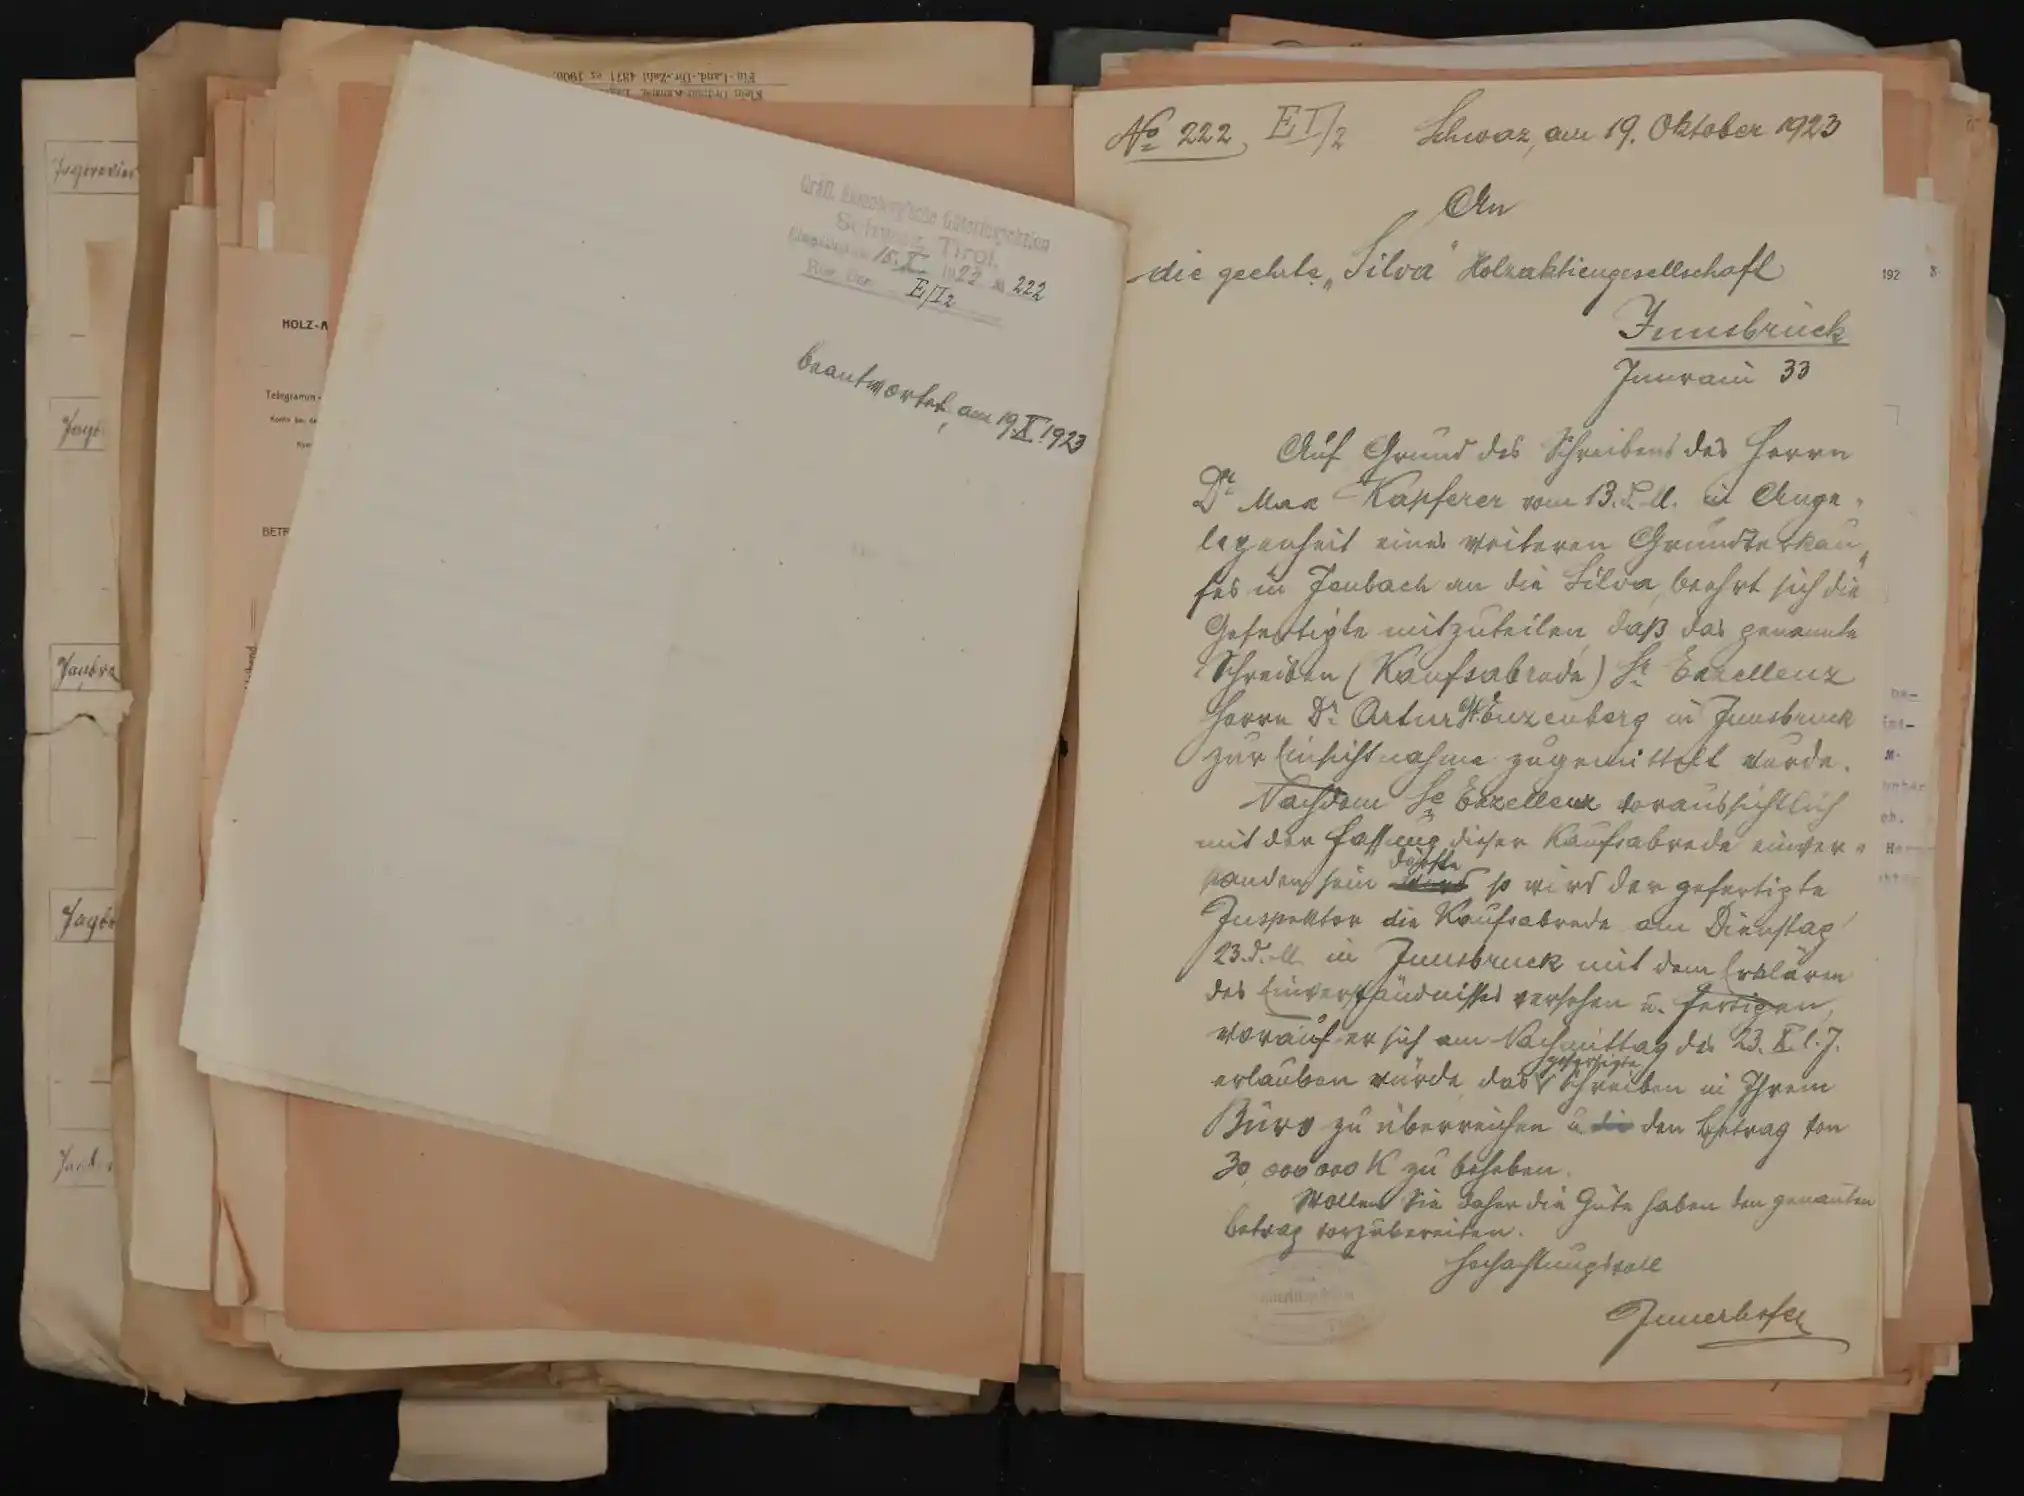 Jagdrevier
Fin-Land.-Dir.-Zahl 4871 ex 1900.
HOLZ-A
Telegramm-
BETR
Gräfl. Enzenberg'sche Güterinspektion
Schwaz, Tirol.
Eingelangt am 15. X. 1923 № 222
E/I2
beantwortet, am 19.X.1923
No 222, E I/2 Schwaz, am 19. Oktober 1923
An
die geehrte „Silva" Holzaktiengesellschaft
Innsbruck
Innrain 33
Auf Grund des Schreibens des Herrn
Dr Max Kapferer vom 13. d. M. in Ange-
legenheit eines weiteren Grundverkau-
fes in Jenbach an die Silva, beehrt sich die
Gefertigte mitzuteilen, daß das genannte
Schreiben (Kaufsabrede) Sr Exzellenz
Herrn Dr. Artur Gf. Enzenberg in Innsbruck
zur Einsichtnahme zugemittelt wurde.
Nachdem Se Exzellenz voraussichtlich
mit der Fassung dieser Kaufsabrede einver-
standen sein dürfte wird so wird der gefertigte
Inspektor die Kaufsabrede am Dienstag
23. d. M. in Innsbruck mit dem Erklären
des Einverständnisses versehen u. fertigen,
worauf er sich am Nachmittag des 23. X. l. J.
erlauben würde, das gefertigte Schreiben in Ihrem
Büro zu überreichen u. die den Betrag von
30,000000 K zu beheben.
Wollen Sie daher die Güte haben den genannten
Betrag vorzubereiten.
Hochachtungsvoll
Innerhofer
192